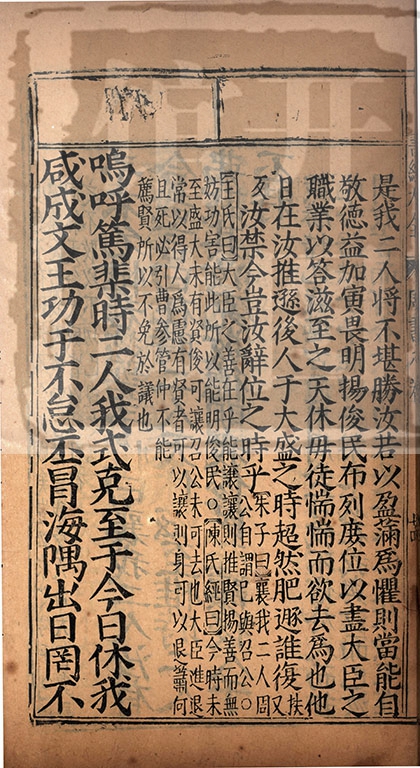 是我二人將不堪勝汝若以盈滿爲懼則當能自
敬德益加寅畏明揚俊民布列庶位以盡大臣之
職業以答滋至之天休毋徒惴惴而欲去爲也他
日在汝推遜後人于大盛之時超然肥遯誰復扶又
反汝禁今豈汝辭位之時乎
朱子曰襄我二人周
公自謂已與召公○
王氏曰大臣之善在乎能讓則推賢揚善而無
妨功害能此所以能明俊民○陳氏經曰今時未
至盛大未有資俊可讓召公未可去也大臣進退
常以得人爲慮有賢者可以讓則身可以退蕭何
且死必引曹參管仲不能
薦賢所以不免於議也
嗚呼篤棐時二人我式克至于今日休我
咸成文王功于不怠丕冒海隅出日罔不